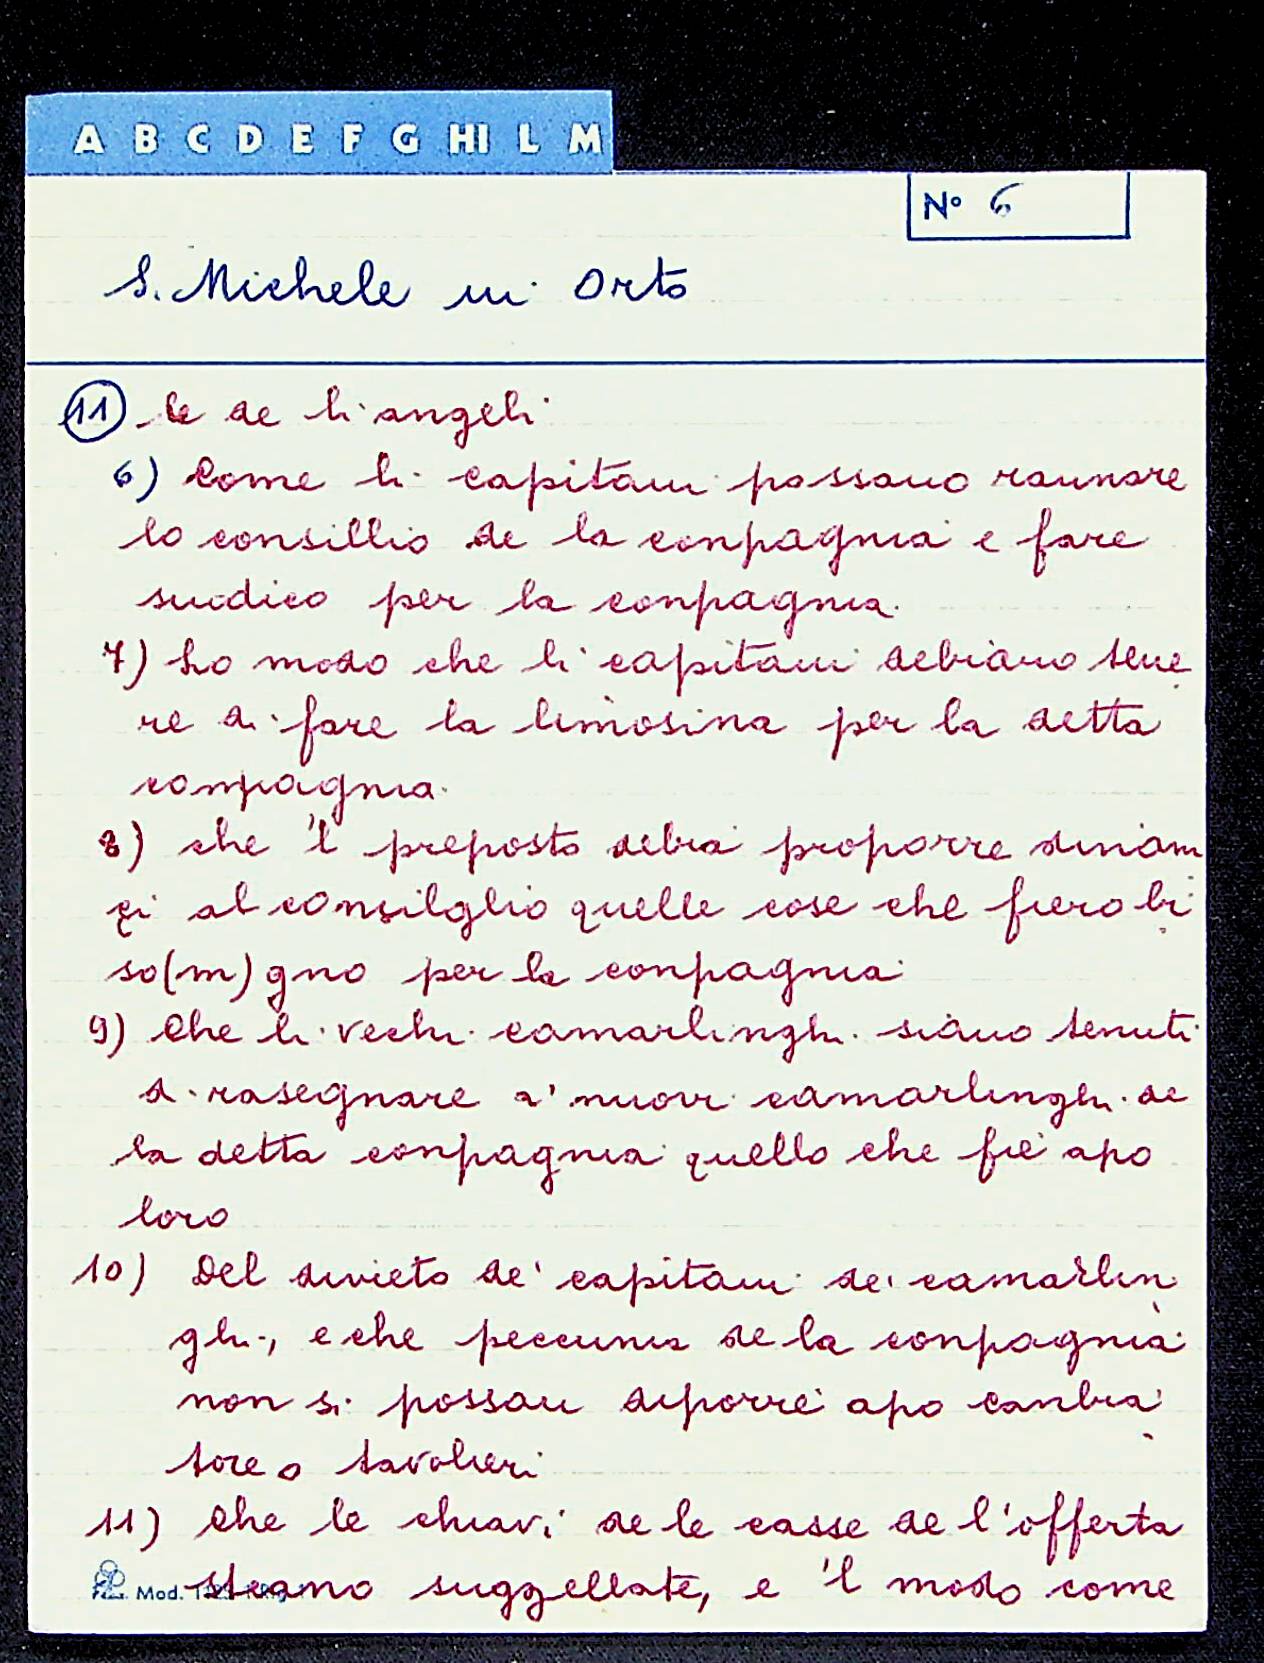 A B C D E F G HI L M
N° 6
S. Michele in Orto
11 le de li angeli
6) Come li capitani possano raunare
lo consillio de la conpagnia e fare
sindico per la conpagnia.
7) Lo modo che li capitani debiano tene
re di fare la limosina per la detta
compagnia.
8) che 'l preposto debia proporre dinan
çi al consilglio quelle cose che fiero bi
so(m)gno per la conpagnia
9) Che li vechi camarlinghi siano tenuti
di rasegnare a' nuovi camarlinghi de
la detta conpagnia quello che fie apo
loro
10) Del divieto de' capitani de' camarlin
ghi, e che peccunia de la conpagnia
non si possan diporre apo canbia
tore o tavolieri
11) Che le chiavi de le casse de l'offerta
stegano suggellate, e 'l modo come
Mod.